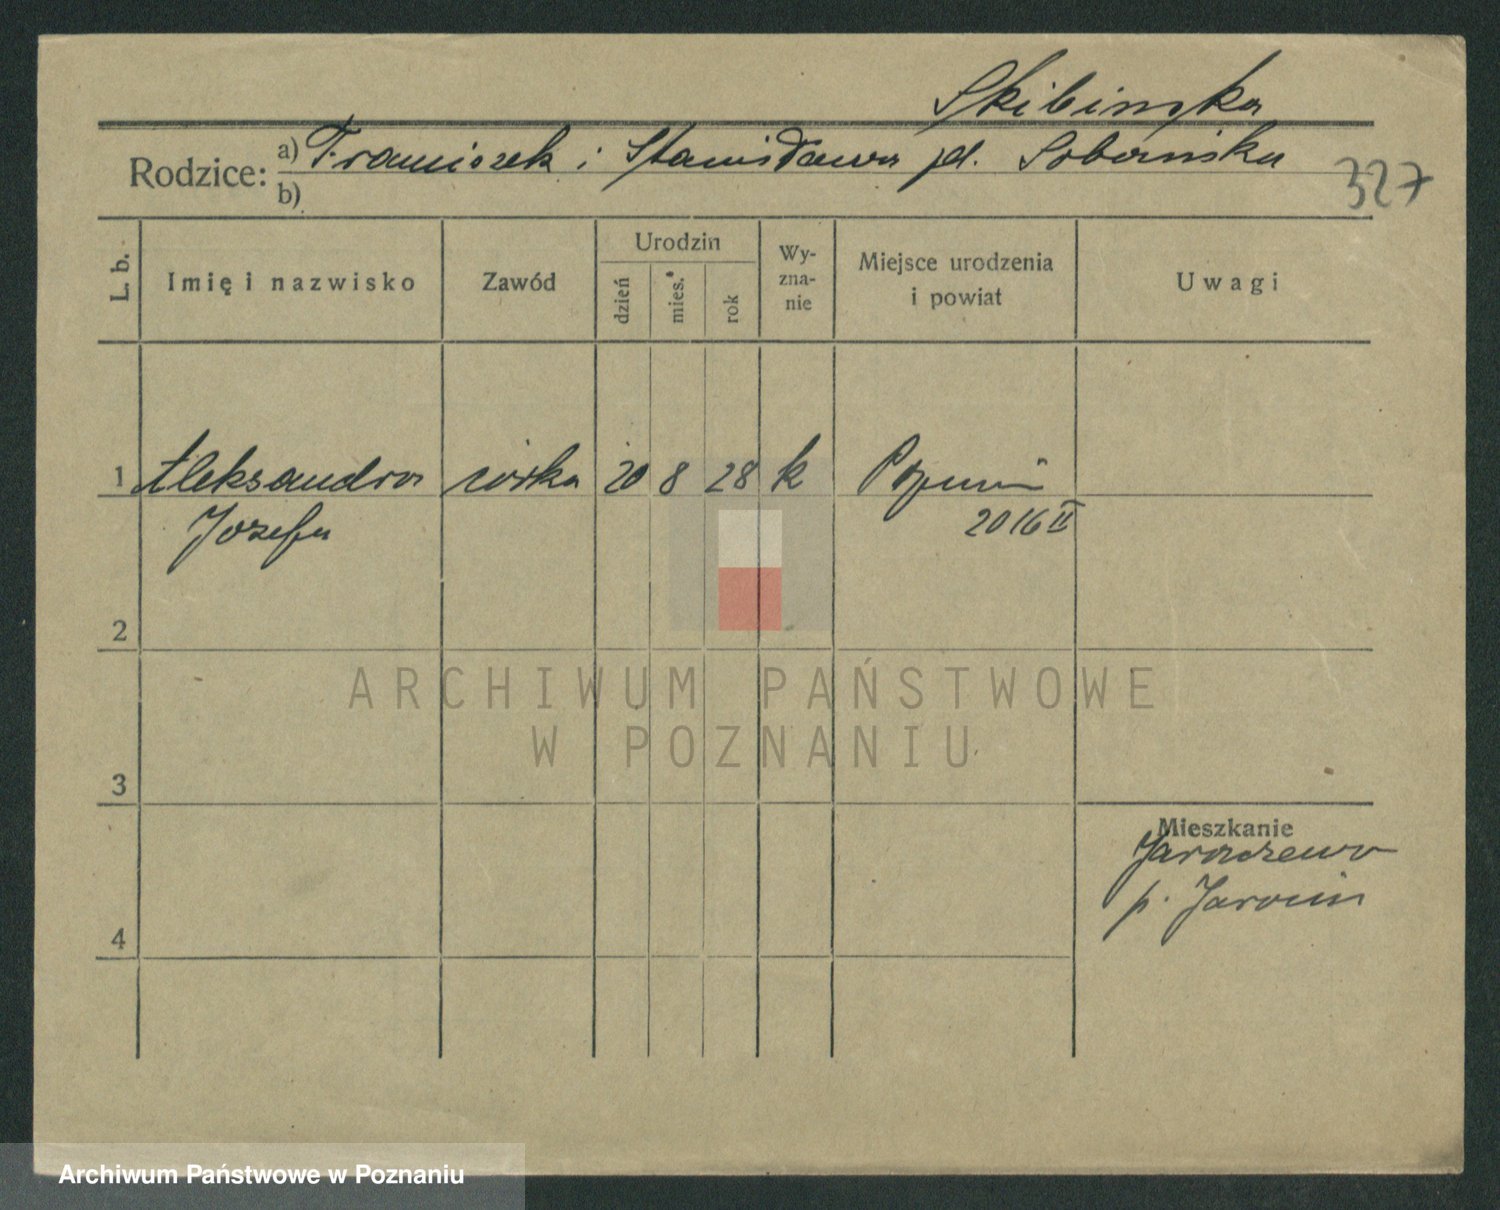 Skibińska
Rodzice: a) Franciszek i Stanisława pd. Sobańska
b)
327
L. b.
Imię i nazwisko
Zawód
Urodzin
dzień
mies.
rok
Wy-
zna-
nie
Miejsce urodzenia
i powiat
Uwagi
1 Aleksandra córka 20 8 28 k Poznań
Józefa 2016 II
2
ARCHIWUM PAŃSTWOWE
W POZNANIU
3
Mieszkanie
Jaraczewo
p. Jarocin
4
Archiwum Państwowe w Poznaniu